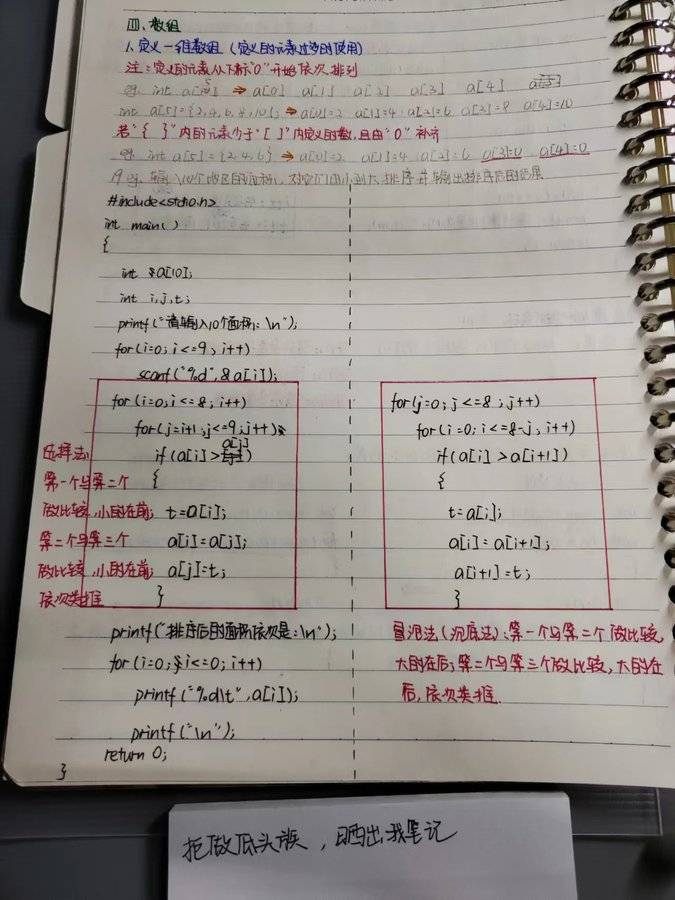 四、数组
1、定义一维数组（定义的元素过多时使用）
注：定义的元素从下标"0"开始依次排列
eg. int a[5] ⇒ a[0] a[1] a[2] a[3] a[4]
int a[5]={2,4,6,8,10}; ⇒ a[0]=2 a[1]=4 a[2]=6 a[3]=8 a[4]=10
若"{ }"内的元素少于"[ ]"内定义的数,且由"0"补齐
eg. int a[5]={2,4,6} ⇒ a[0]=2 a[1]=4 a[2]=6 a[3]=0 a[4]=0
eg. 输入10个地区的面积,对它们由小到大排序并输出排序后的结果
#include<stdio.h>
int main()
{
int a[10];
int i,j,t;
printf("请输入10个面积:\n");
for(i=0;i<=9;i++)
scanf("%d",&a[i]);
for(i=0;i<=8;i++)
for(j=i+1;j<=9;j++)
if(a[i]>a[j])
{
t=a[i];
a[i]=a[j];
a[j]=t;
}
选择法:
第一个与第二个
做比较,小的在前;
第二个与第三个
做比较,小的在前;
依次类推
for(j=0;j<=8;j++)
for(i=0;i<=8-j;i++)
if(a[i]>a[i+1])
{
t=a[i];
a[i]=a[i+1];
a[i+1]=t;
}
冒泡法(沉底法):第一个与第二个做比较,
大的在后;第二个与第三个做比较,大的在
后,依次类推.
printf("排序后的面积依次是:\n");
for(i=0;i<=0;i++)
printf("%d\t",a[i]);
printf("\n");
return 0;
}
拒做低头族，晒出我笔记